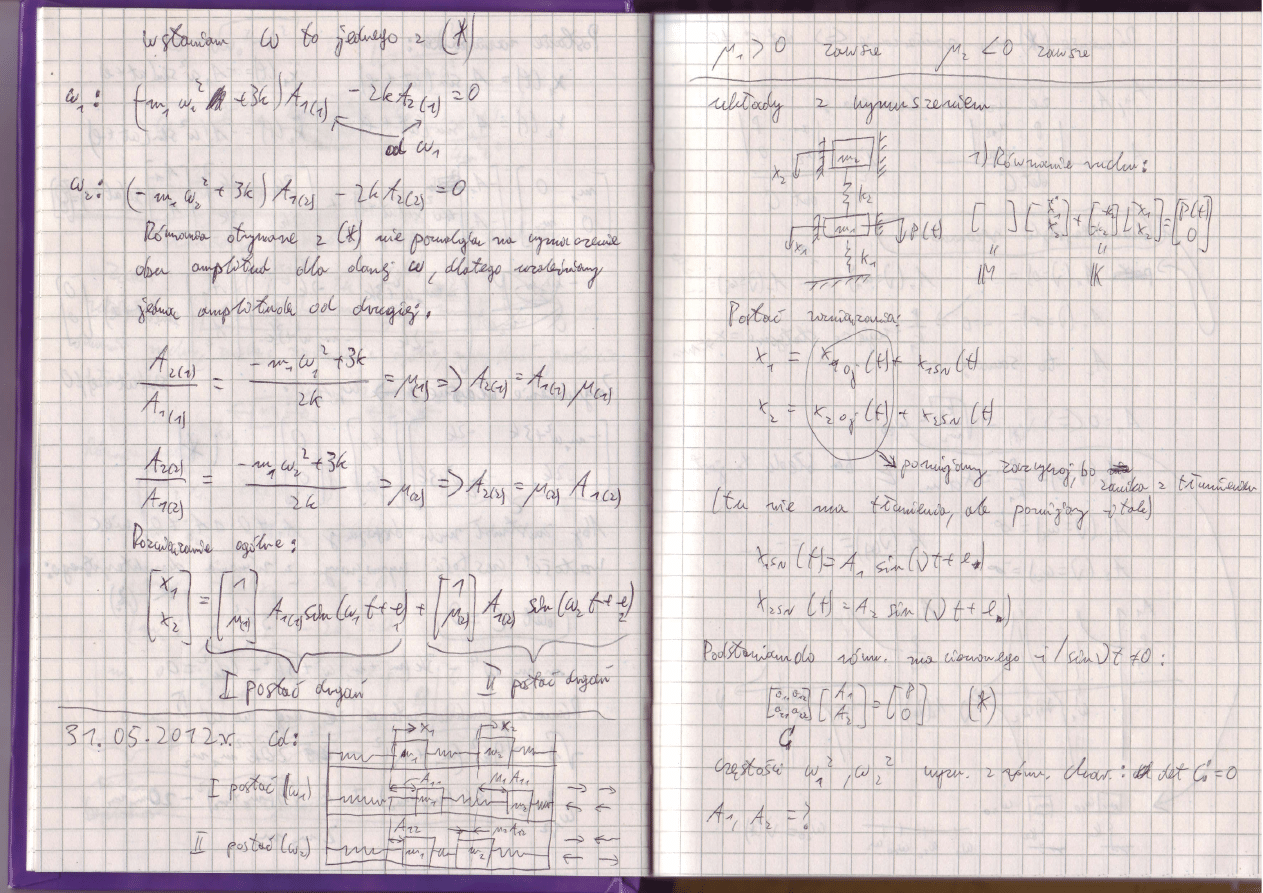 wstawiam ω to jednego z (*)
ω₁: (-m₁ω₂² + 3k) A₁₍₁₎ - 2kA₂₍₁₎ = 0
od ω₁
ω₂: (-m₁ω₂² + 3k) A₁₍₂₎ - 2kA₂₍₂₎ = 0
Równania otrzymane z (*) nie pozwalają na wyznaczenie
obu amplitud dla danej ω, dlatego uzależniamy
jedną amplitudę od drugiej.
A₂₍₁₎/A₁₍₁₎ = (-m₁ω₁² + 3k)/2k = μ₍₁₎ => A₂₍₁₎ = A₁₍₁₎ μ₍₁₎
A₂₍₂₎/A₁₍₂₎ = (-m₁ω₂² + 3k)/2k = μ₍₂₎ => A₂₍₂₎ = μ₍₂₎ A₁₍₂₎
Rozwiązanie ogólne:
[x₁ x₂] = [1 μ₍₁₎] A₁₍₁₎ sin(ω₁t + e₁) + [1 μ₍₂₎] A₁₍₂₎ sin(ω₂t + e₂)
I postać drgań II postać drgań
31.05.2012r. cd:
x₁ x₂
m₁ m₂
I postać (ω₁)
A₁₁ μ₁A₁₁
m₁ m₂
II postać (ω₂)
A₁₂ μ₂A₁₂
m₁ m₂
μ₁ > 0 zawsze μ₂ < 0 zawsze
układy z wymuszeniem
x₂ m₂ k₂
x₁ m₁ P(t) k₁
1) Równanie ruchu:
[ ] [ẍ₁ ẍ₂] + [ ] [x₁ x₂] = [P(t) 0]
M K
Postać rozwiązania:
x₁ = x₁oj(t) + x₁sn(t)
x₂ = x₂oj(t) + x₂sn(t)
pomijamy zazwyczaj, bo zanika z tłumieniem
(tu nie ma tłumienia, ale pomijamy i tak)
x₁sn(t) = A₁ sin(νt + e)
x₂sn(t) = A₂ sin(νt + e)
Podstawiam do równ. macierzowego i / sin νt ≠ 0:
[a₁₁ a₁₂ a₂₁ a₂₂] [A₁ A₂] = [P 0] (*)
C
częstości ω₁², ω₂² wyzn. z równ. char.: det C = 0
A₁, A₂ = ?